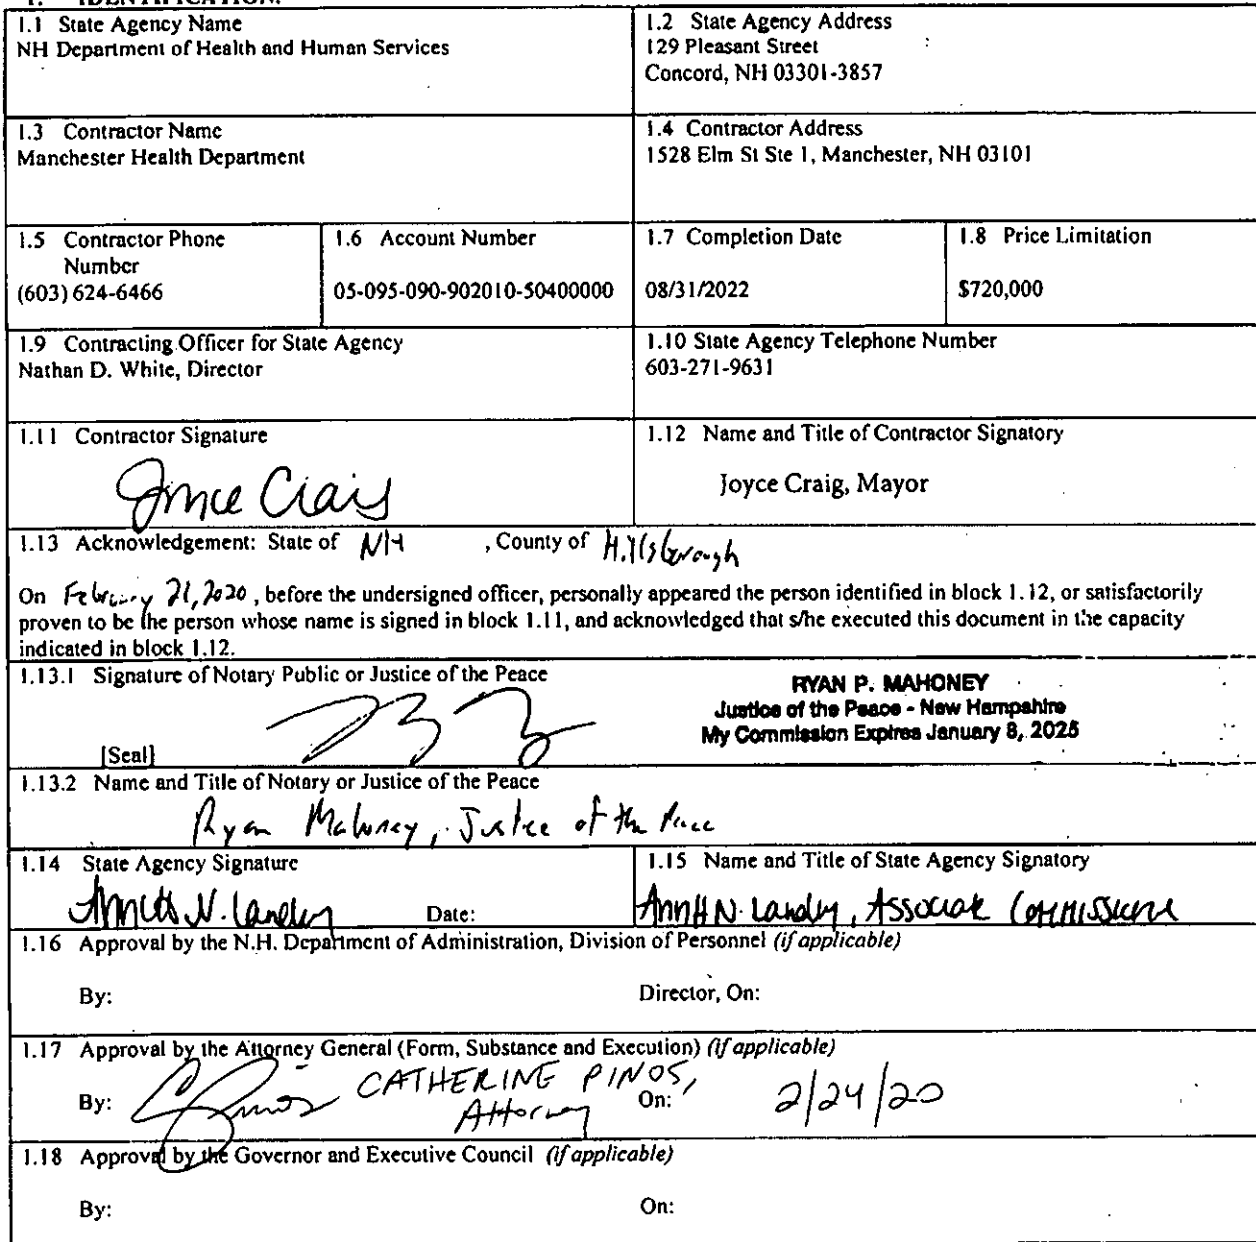 1. IDENTIFICATION.
1.1 State Agency Name
NH Department of Health and Human Services
1.2 State Agency Address
129 Pleasant Street
Concord, NH 03301-3857
1.3 Contractor Name
Manchester Health Department
1.4 Contractor Address
1528 Elm St Ste 1, Manchester, NH 03101
1.5 Contractor Phone
Number
(603) 624-6466
1.6 Account Number
05-095-090-902010-50400000
1.7 Completion Date
08/31/2022
1.8 Price Limitation
$720,000
1.9 Contracting Officer for State Agency
Nathan D. White, Director
1.10 State Agency Telephone Number
603-271-9631
1.11 Contractor Signature
Joyce Craig
1.12 Name and Title of Contractor Signatory
Joyce Craig, Mayor
1.13 Acknowledgement: State of NH , County of Hillsborough
On February 21, 2020, before the undersigned officer, personally appeared the person identified in block 1.12, or satisfactorily
proven to be the person whose name is signed in block 1.11, and acknowledged that s/he executed this document in the capacity
indicated in block 1.12.
1.13.1 Signature of Notary Public or Justice of the Peace
[Seal]
RYAN P. MAHONEY
Justice of the Peace - New Hampshire
My Commission Expires January 8, 2025
1.13.2 Name and Title of Notary or Justice of the Peace
Ryan Mahoney, Justice of the Peace
1.14 State Agency Signature
Date:
1.15 Name and Title of State Agency Signatory
Ann H N. Landry, Associate Commissioner
1.16 Approval by the N.H. Department of Administration, Division of Personnel (if applicable)
By: Director, On:
1.17 Approval by the Attorney General (Form, Substance and Execution) (if applicable)
By: CATHERINE PINOS, Attorney On: 2/24/20
1.18 Approval by the Governor and Executive Council (if applicable)
By: On: